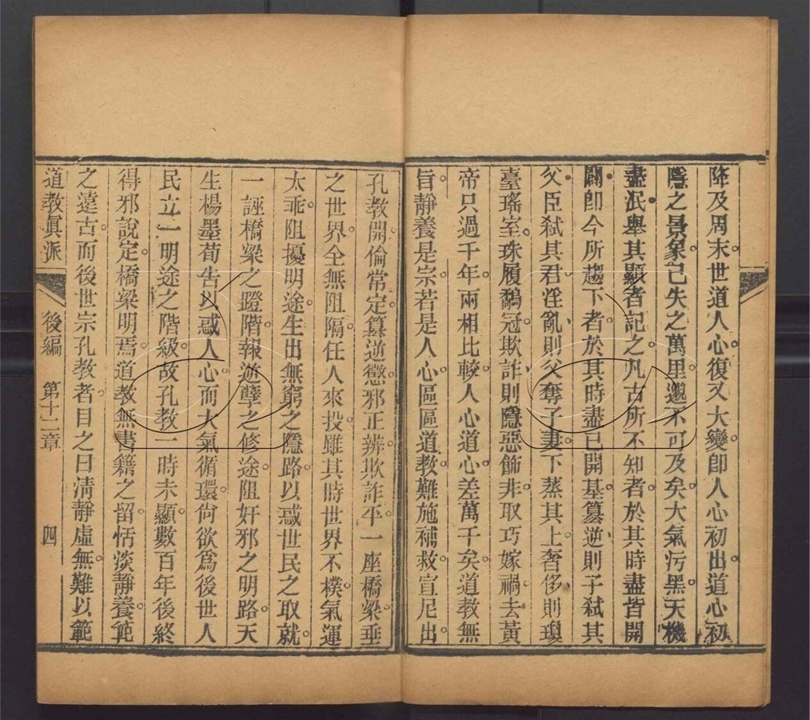 降及周末世道人心復又大變即人心初出道心初
隱之景象已失之萬里邈不可及矣大氣污黑天機
盡泯舉其顯者記之凡古所不知者於其時盡皆開
闢即今所趨下者於其時盡已開基篡逆則子弒其
父臣弒其君淫亂則父奪子妻下蒸其上奢侈則瓊
臺瑤室珠履鷸冠欺詐則隱惡飾非取巧嫁禍去黃
帝只過千年兩相比較人心道心差萬千矣道教無
旨靜養是宗若是人心區區道教難施補救宣尼出
孔教開倫常定篡逆懲邪正辨欺詐平一座橋梁垂
之世界全無阻隔任人來投雖其時世界不樸氣運
太乖阻擾明途生出無窮之隱路以惑世民之取就
一誣橋梁之蹬階報逆孽之修途阻奸邪之明路天
生楊墨荀告以惑人心而大氣循環尚欲為後世人
民立一明途之階級故孔教一時未顯數百年後終
得邪說定橋梁明焉道教無書籍之留恬淡靜養範
之遠古而後世宗孔教者目之曰清靜虛無難以範
道教眞派 後編 第十二章 四